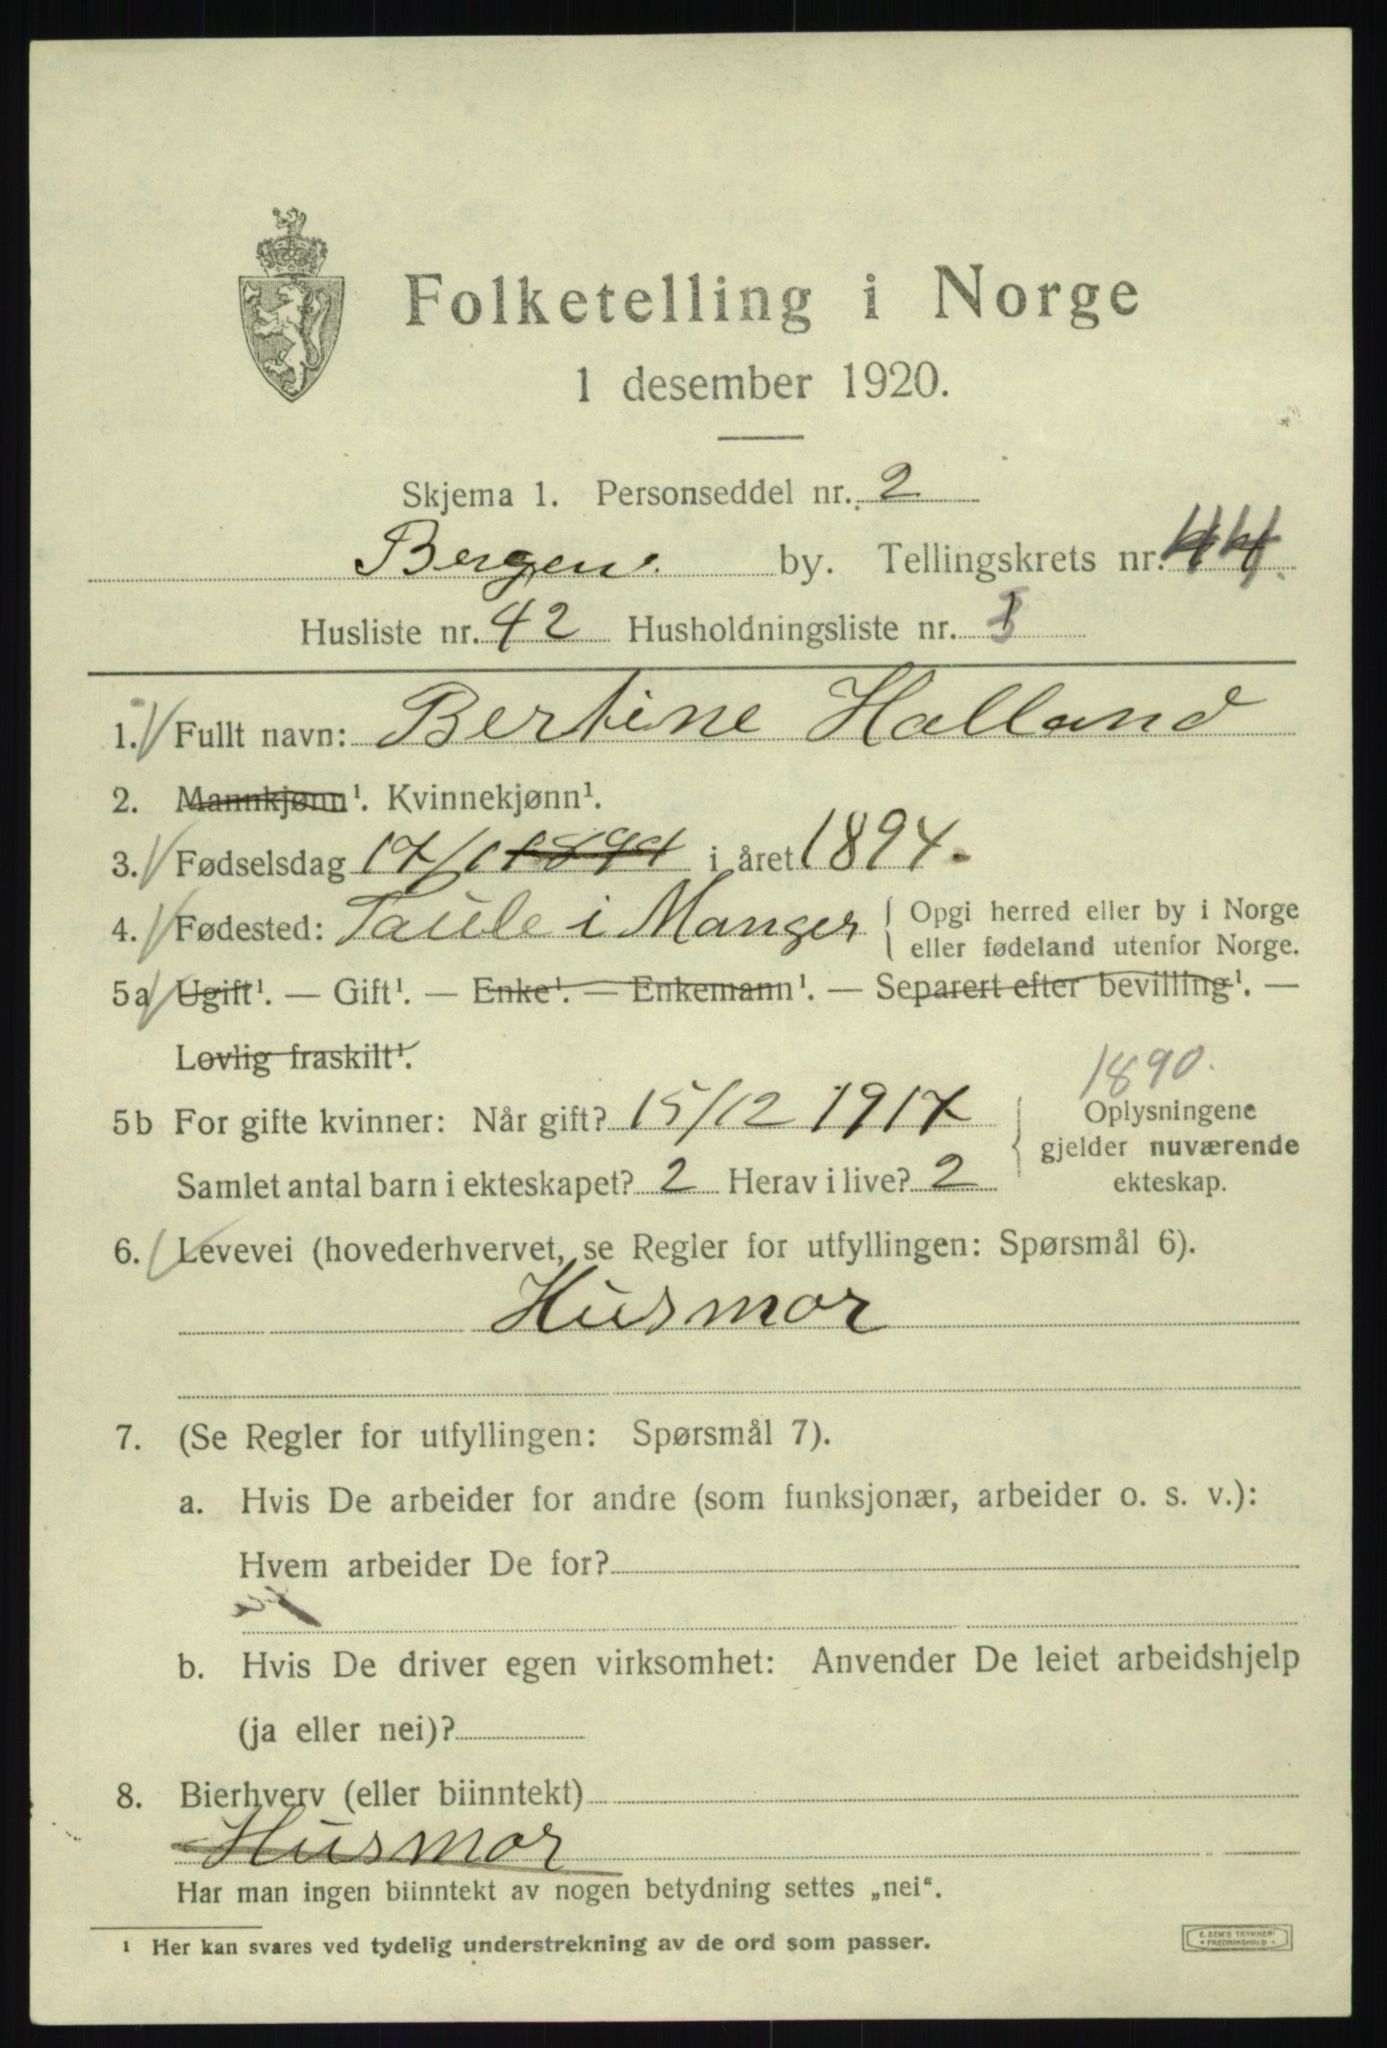 Folketelling i Norge
1 desember 1920.
Skjema 1. Personseddel nr. 2
Bergen by. Tellingskrets nr. 44.
Husliste nr. 42 Husholdningsliste nr.
1. Fullt navn: Bertine Halland
2. Mannkjønn¹. Kvinnekjønn¹.
3. Fødselsdag 17/1 1894 i året 1894.
4. Fødested: Saule i Manger { Opgi herred eller by i Norge
eller fødeland utenfor Norge.
5a Ugift¹. — Gift¹. — Enke¹. — Enkemann¹. — Separert efter bevilling¹. —
Lovlig fraskilt¹.
1890.
5b For gifte kvinner: Når gift? 15/12 1917 { Oplysningene
gjelder nuværende
Samlet antal barn i ekteskapet? 2 Herav i live? 2 ekteskap.
6. Levevei (hovederhvervet, se Regler for utfyllingen: Spørsmål 6).
Husmor
7. (Se Regler for utfyllingen: Spørsmål 7).
a. Hvis De arbeider for andre (som funksjonær, arbeider o. s. v.):
Hvem arbeider De for?
b. Hvis De driver egen virksomhet: Anvender De leiet arbeidshjelp
(ja eller nei)?
8. Bierhverv (eller biinntekt)
Husmor
Har man ingen biinntekt av nogen betydning settes „nei“.
¹ Her kan svares ved tydelig understrekning av de ord som passer.
E. SEM'S TRYKKERI
FREDRIKSHALD